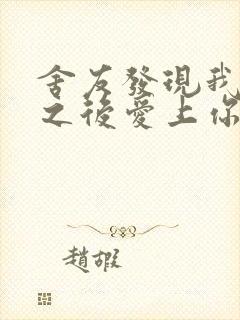 舍友發現我
之後愛上你
趙煆